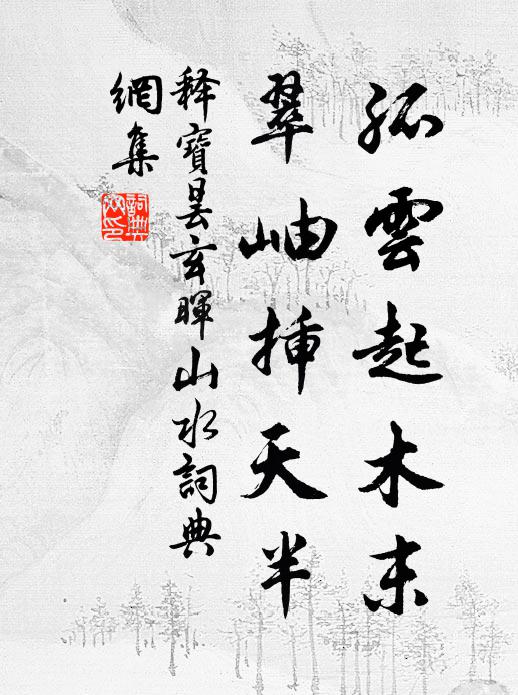 孤雲起木末
翠岫插天半
释寶曇玄暉山水詞典
網集
詞典網印